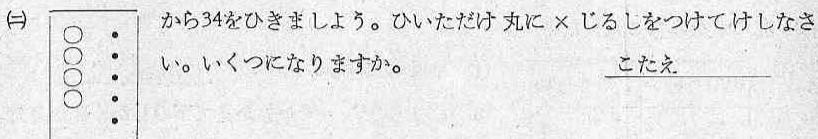 ㈡ から34をひきましょう。ひいただけ 丸に × じるしをつけて けしなさ
い。いくつになりますか。 こたえ